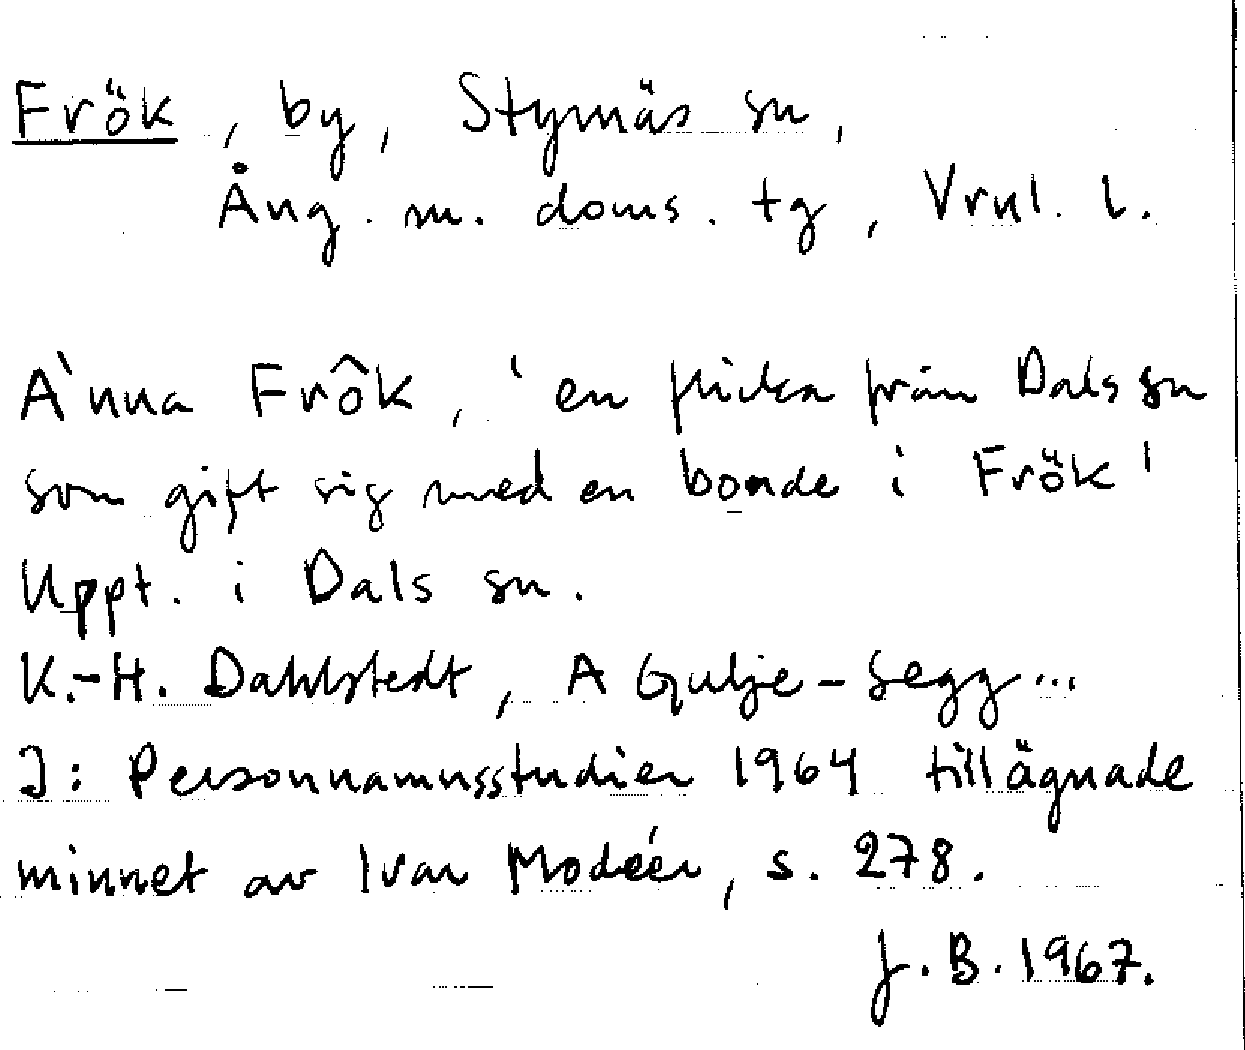 Frök, by, Styrnäs sn,
Ång. m. doms. tg, Vrnl. l.
A`nna Frôk, 'en flicka från Dals sn
som gift sig med en bonde i Frök'
Uppt. i Dals sn.
K.-H. Dahlstedt, A Gulje-Segg...
I: Personnamnsstudier 1964 tillägnade
minnet av Ivar Modéer, s. 278.
J.B. 1967.